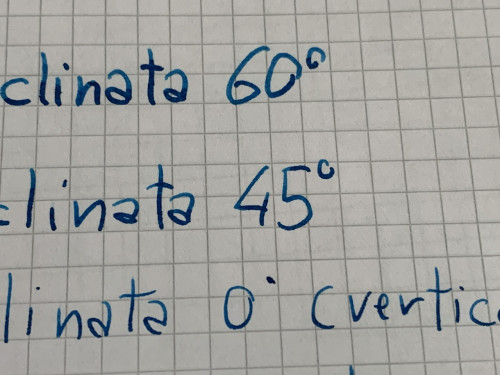 clinata 60°
clinata 45°
linata 0° (vertic